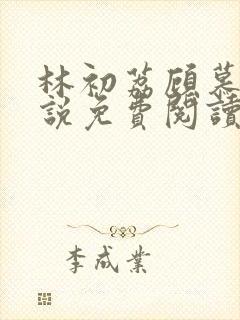 林初荔顾慕
說免費閱讀
李成業